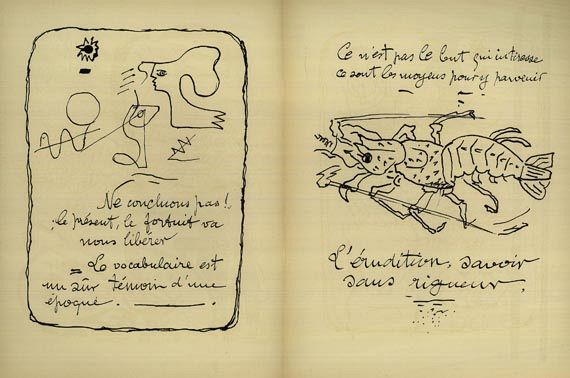 Ne concluons pas !
le présent, le fortuit va
nous libérer
= Le vocabulaire est
un sûr témoin d'une
époque.
Ce n'est pas le but qui intéresse
ce sont les moyens pour y parvenir
L'érudition, savoir
sans rigueur.